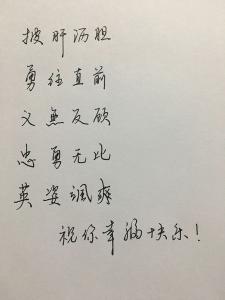 披肝沥胆
勇往直前
义无反顾
忠勇无比
英姿飒爽
祝你幸福快乐！